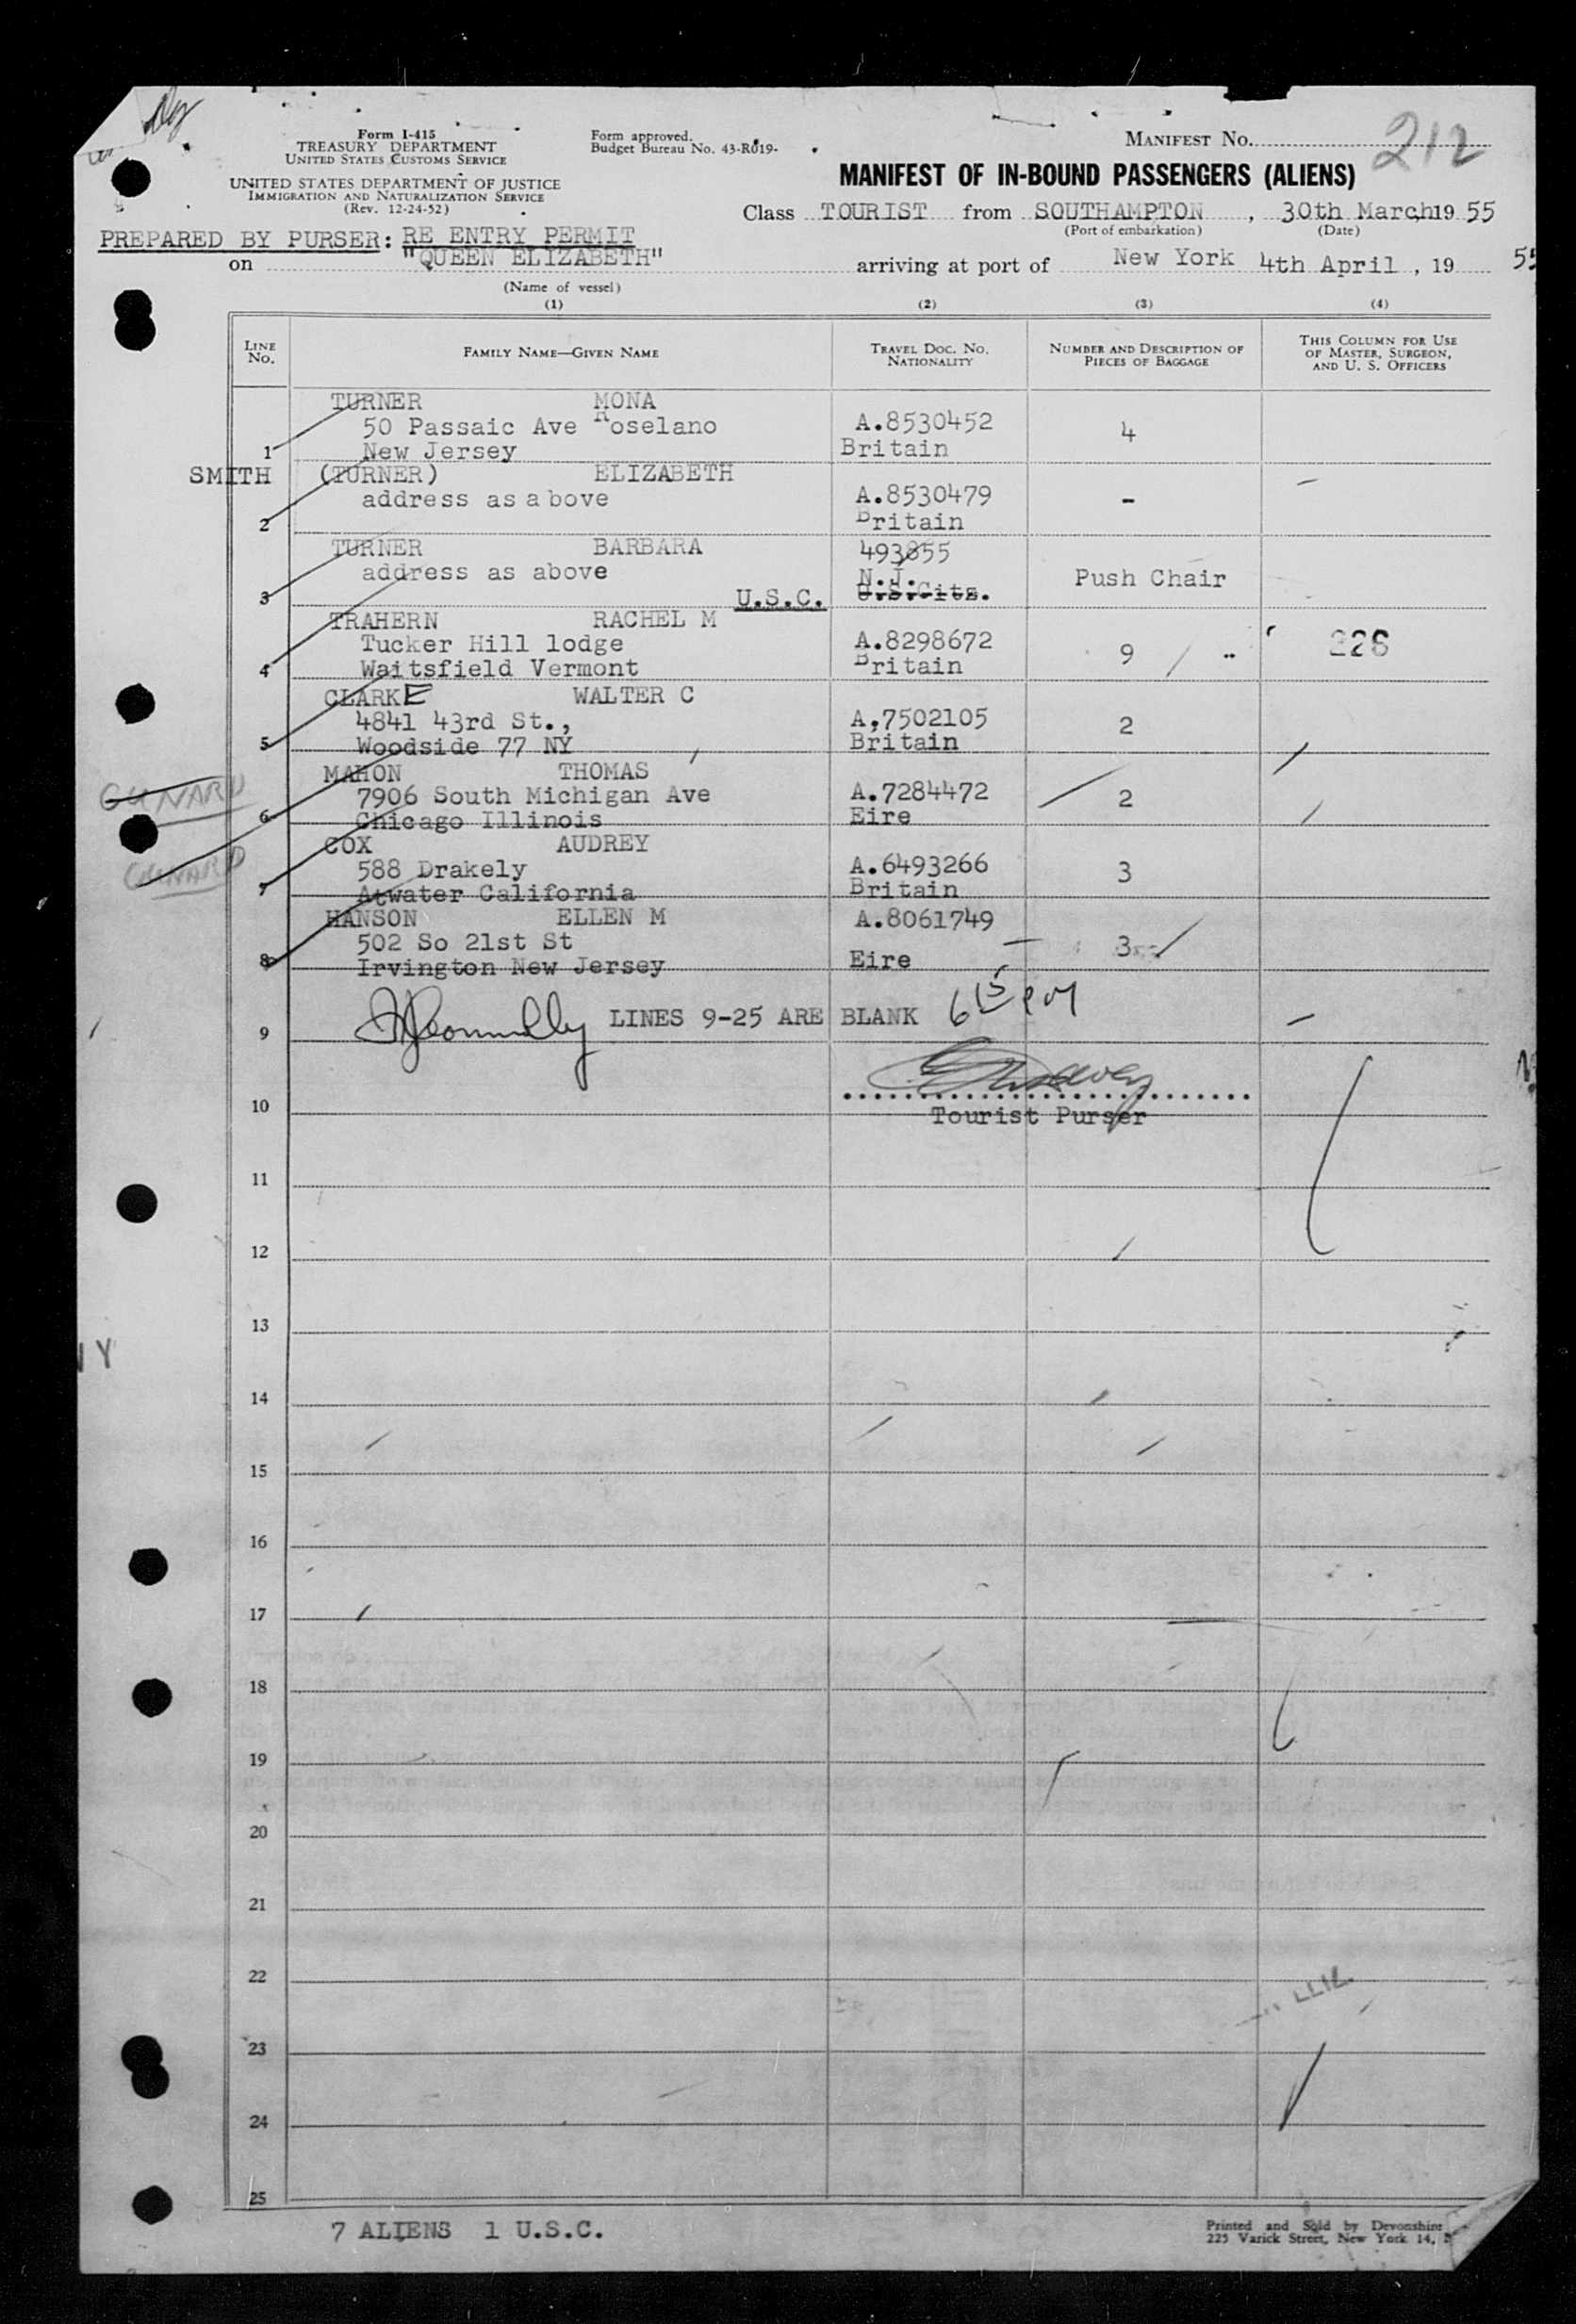 Form I-415
TREASURY DEPARTMENT
UNITED STATES CUSTOMS SERVICE
UNITED STATES DEPARTMENT OF JUSTICE
IMMIGRATION AND NATURALIZATION SERVICE
(Rev. 12-24-52)
Form approved.
Budget Bureau No. 43-R019-
MANIFEST No. 212
MANIFEST OF IN-BOUND PASSENGERS (ALIENS)
Class TOURIST from SOUTHAMPTON, 30th March, 1955
(Port of embarkation) (Date)
PREPARED BY PURSER: RE ENTRY PERMIT
on "QUEEN ELIZABETH" arriving at port of New York 4th April, 19 55
(Name of vessel)
(1) (2) (3) (4)
LINE No. FAMILY NAME—GIVEN NAME TRAVEL DOC. NO. NATIONALITY NUMBER AND DESCRIPTION OF PIECES OF BAGGAGE THIS COLUMN FOR USE OF MASTER, SURGEON, AND U. S. OFFICERS
TURNER MONA
50 Passaic Ave Roselano A.8530452 4
1 New Jersey Britain
SMITH (TURNER) ELIZABETH
address as above A.8530479 -
2 Britain
TURNER BARBARA 493855
address as above N.J. Push Chair
3 U.S.C. U.S.Cits.
TRAHERN RACHEL M
Tucker Hill lodge A.8298672 9 226
4 Waitsfield Vermont Britain
CLARKE WALTER C
4841 43rd St., A,7502105 2
5 Woodside 77 NY Britain
MAHON THOMAS
CUNARD 7906 South Michigan Ave A.7284472 2
6 Chicago Illinois Eire
COX AUDREY
CUNARD 588 Drakely A.6493266 3
7 Atwater California Britain
HANSON ELLEN M A.8061749
502 So 21st St 3
8 Irvington New Jersey Eire
LINES 9-25 ARE BLANK 6 15 PM
9
10 Tourist Purser
11
12
13
14
15
16
17
18
19
20
21
22
23
24
25
7 ALIENS 1 U.S.C.
Printed and Sold by Devonshire
225 Varick Street, New York 14,